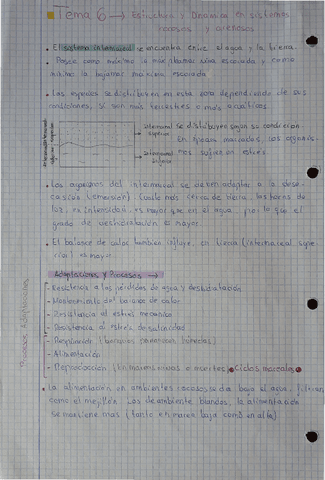 Tema 6 → Estructura y Dinámica en sistemas
rocosos y arenosos
• El sistema intermareal se encuentra entre el agua y la tierra.
Posee como máximo la
mínimo la bajamar maxima
• Las especies se distribuyen en esta zona dependiendo de sus
condiciones, si son más terrestres o más acuáticas.
Intermareal se distribuyen según su condición
superior En épocas mareales, los organis-
Intermareal mos sufren un estres
• Los organismos del intermareal se deben adaptar a la dese-
cación (emersión) (cuanto más cerca de tierra, las horas de
luz, en intensidad, es mayor que en el agua, por lo que el
grado de deshidratación es mayor.
• El balance de calor también influye, en tierra (intermareal supe-
rior) es mayor.
Adaptaciones y Procesos →
- Resistencia a las pérdidas de agua y deshidratación
- Mantenimiento del balance de calor
- Resistencia al estrés mecánico
- Resistencia al estrés de salinidad
- Respiración (branquias
- Alimentación
- Reproducción
Ciclos mareales
Procesos Adaptaciones
• La alimentación en ambientes rocosos se da bajo el agua, filtran
como el mejillón. Los de ambiente blandos, la alimentación
se mantiene más (tanto en marea baja como en alta)